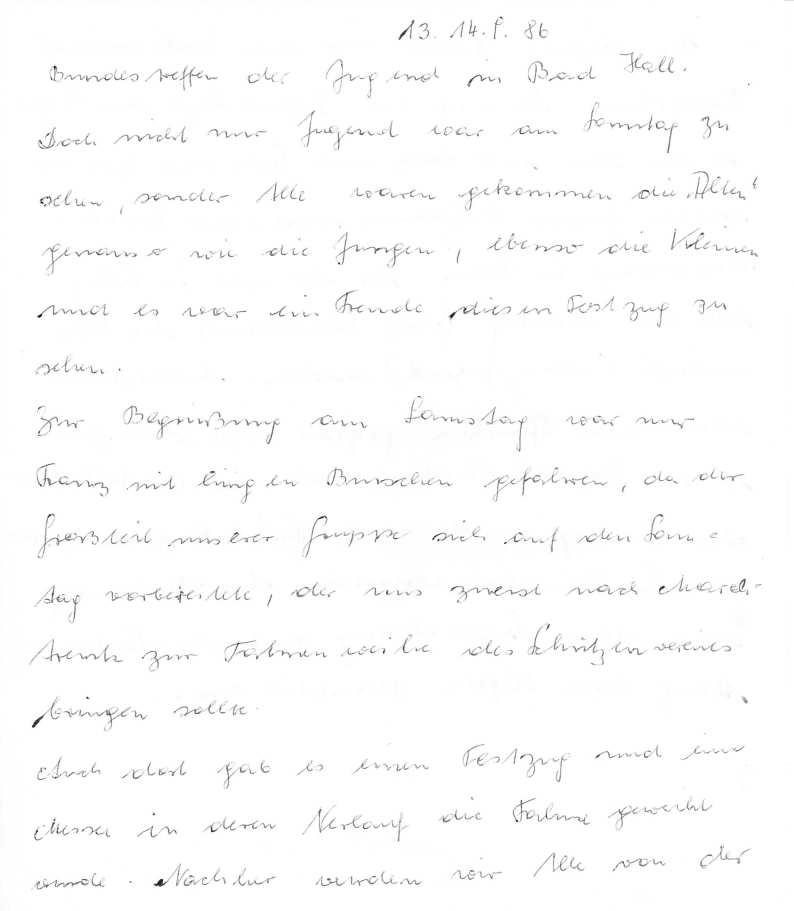 13. 14. 9. 86
Bundestreffen der Jugend in Bad Hall.
Doch nicht nur Jugend war am Samstag zu
sehen, sonder Alle waren gekommen die "Alten"
genauso wie die Jungen, ebenso die Kleinen
und es war ein Freude diesen Festzug zu
sehen.
Zur Begrüßung am Samstag war nur
Franz mit einigen Burschen gefahren, da der
Großteil unserer Gruppe sich auf den Sonn=
tag vorbereitete, der uns zuerst nach March-
trenk zur Fahnenweihe des Schützenvereines
bringen sollte.
Auch dort gab es einen Festzug und eine
Messe in deren Verlauf die Fahne geweiht
wurde. Nachher wurden wir Alle von der